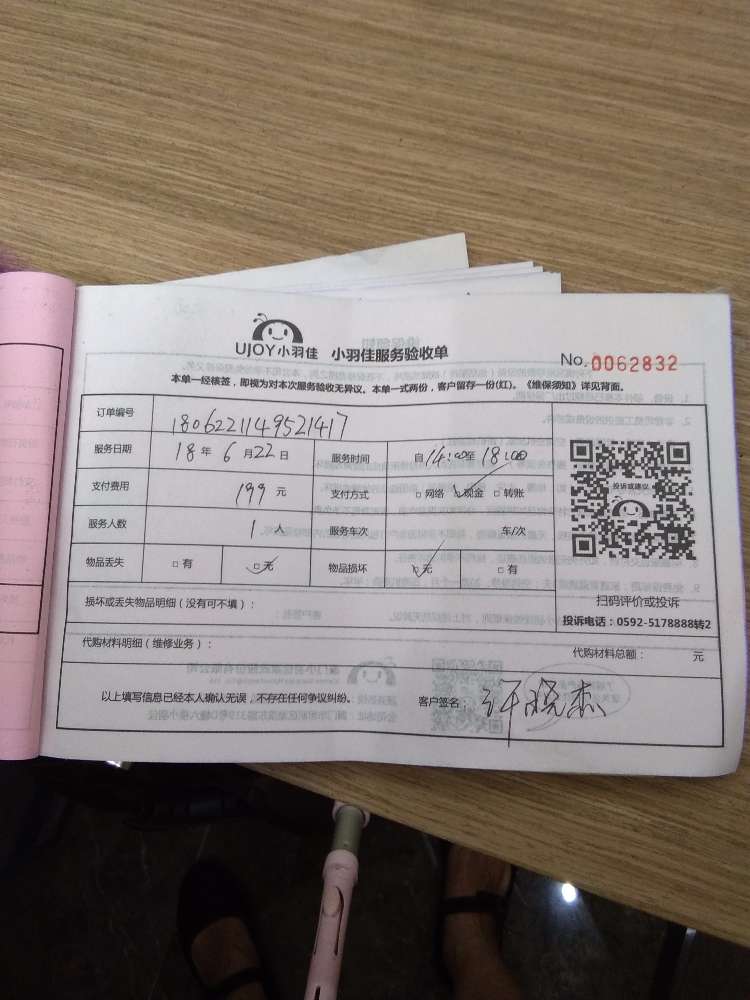 UJOY小羽佳 小羽佳服务验收单
No. 0062832
本单一经核签，即视为对本次服务验收无异议。本单一式两份，客户留存一份(红)。《维保须知》详见背面。
订单编号 1806221149521417
服务日期 18 年 6 月 22 日 服务时间 自 14:00 至 18:00
支付费用 199 元 支付方式 □网络 ☑现金 □转账
服务人数 1 人 服务车次 车/次
物品丢失 □有 ☑无 物品损坏 ☑无 □有
投诉或建议
扫码评价或投诉
投诉电话：0592-5178888转2
损坏或丢失物品明细（没有可不填）：
代购材料明细（维修业务）： 代购材料总额： 元
以上填写信息已经本人确认无误，不存在任何争议纠纷。 客户签名： 许晓杰